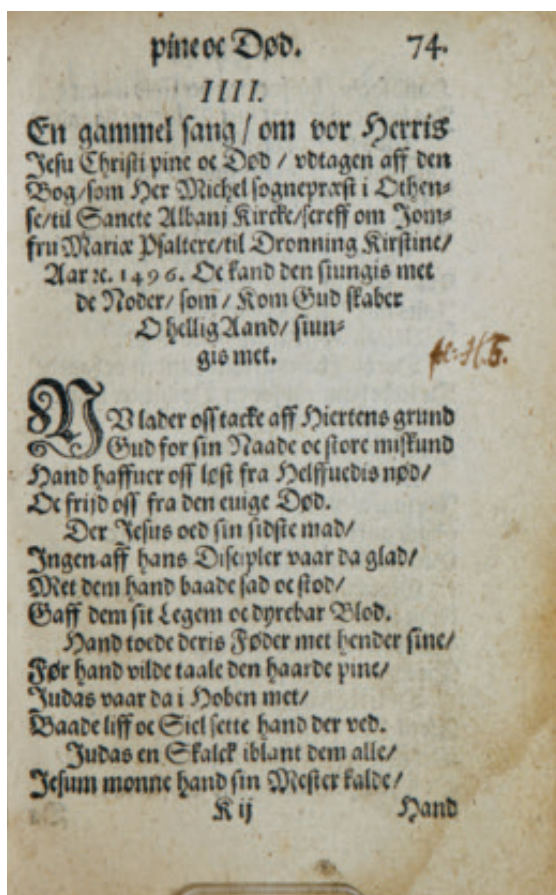 pine oc Død. 74.
IIII.
En gammel sang / om vor Herris
Jesu Christi pine oc Død / vdtagen aff den
Bog/som Her Michel sognepræst i Othen-
se/til Sancte Albanj Kircke/screff om Jom-
fru Mariæ Psaltere/til Dronning Kirstine/
Aar ꝛc. 1496. Oc kand den siungis met
de Noder/ som / Kom Gud skaber
O hellig Aand/ siun-
gis met.
NV lader oss tacke aff Hiertens grund
Gud for sin Naade oc store miskund
Hand haffuer oss løst fra Helffuedis nød/
Oc frijd oss fra den euige Død.
Der Jesus oed sin sidste mad/
Ingen aff hans Discipler vaar da glad/
Met dem hand baade sad oc stod/
Gaff dem sit Legem oc dyrebar Blod.
Hand toede deris Føder met hender sine/
Før hand vilde taale den haarde pine/
Judas vaar da i Hoben met/
Baade liff oc Siel sette hand der ved.
Judas en Skalck iblant dem alle/
Jesum monne hand sin Mester kalde/
K ij Hand